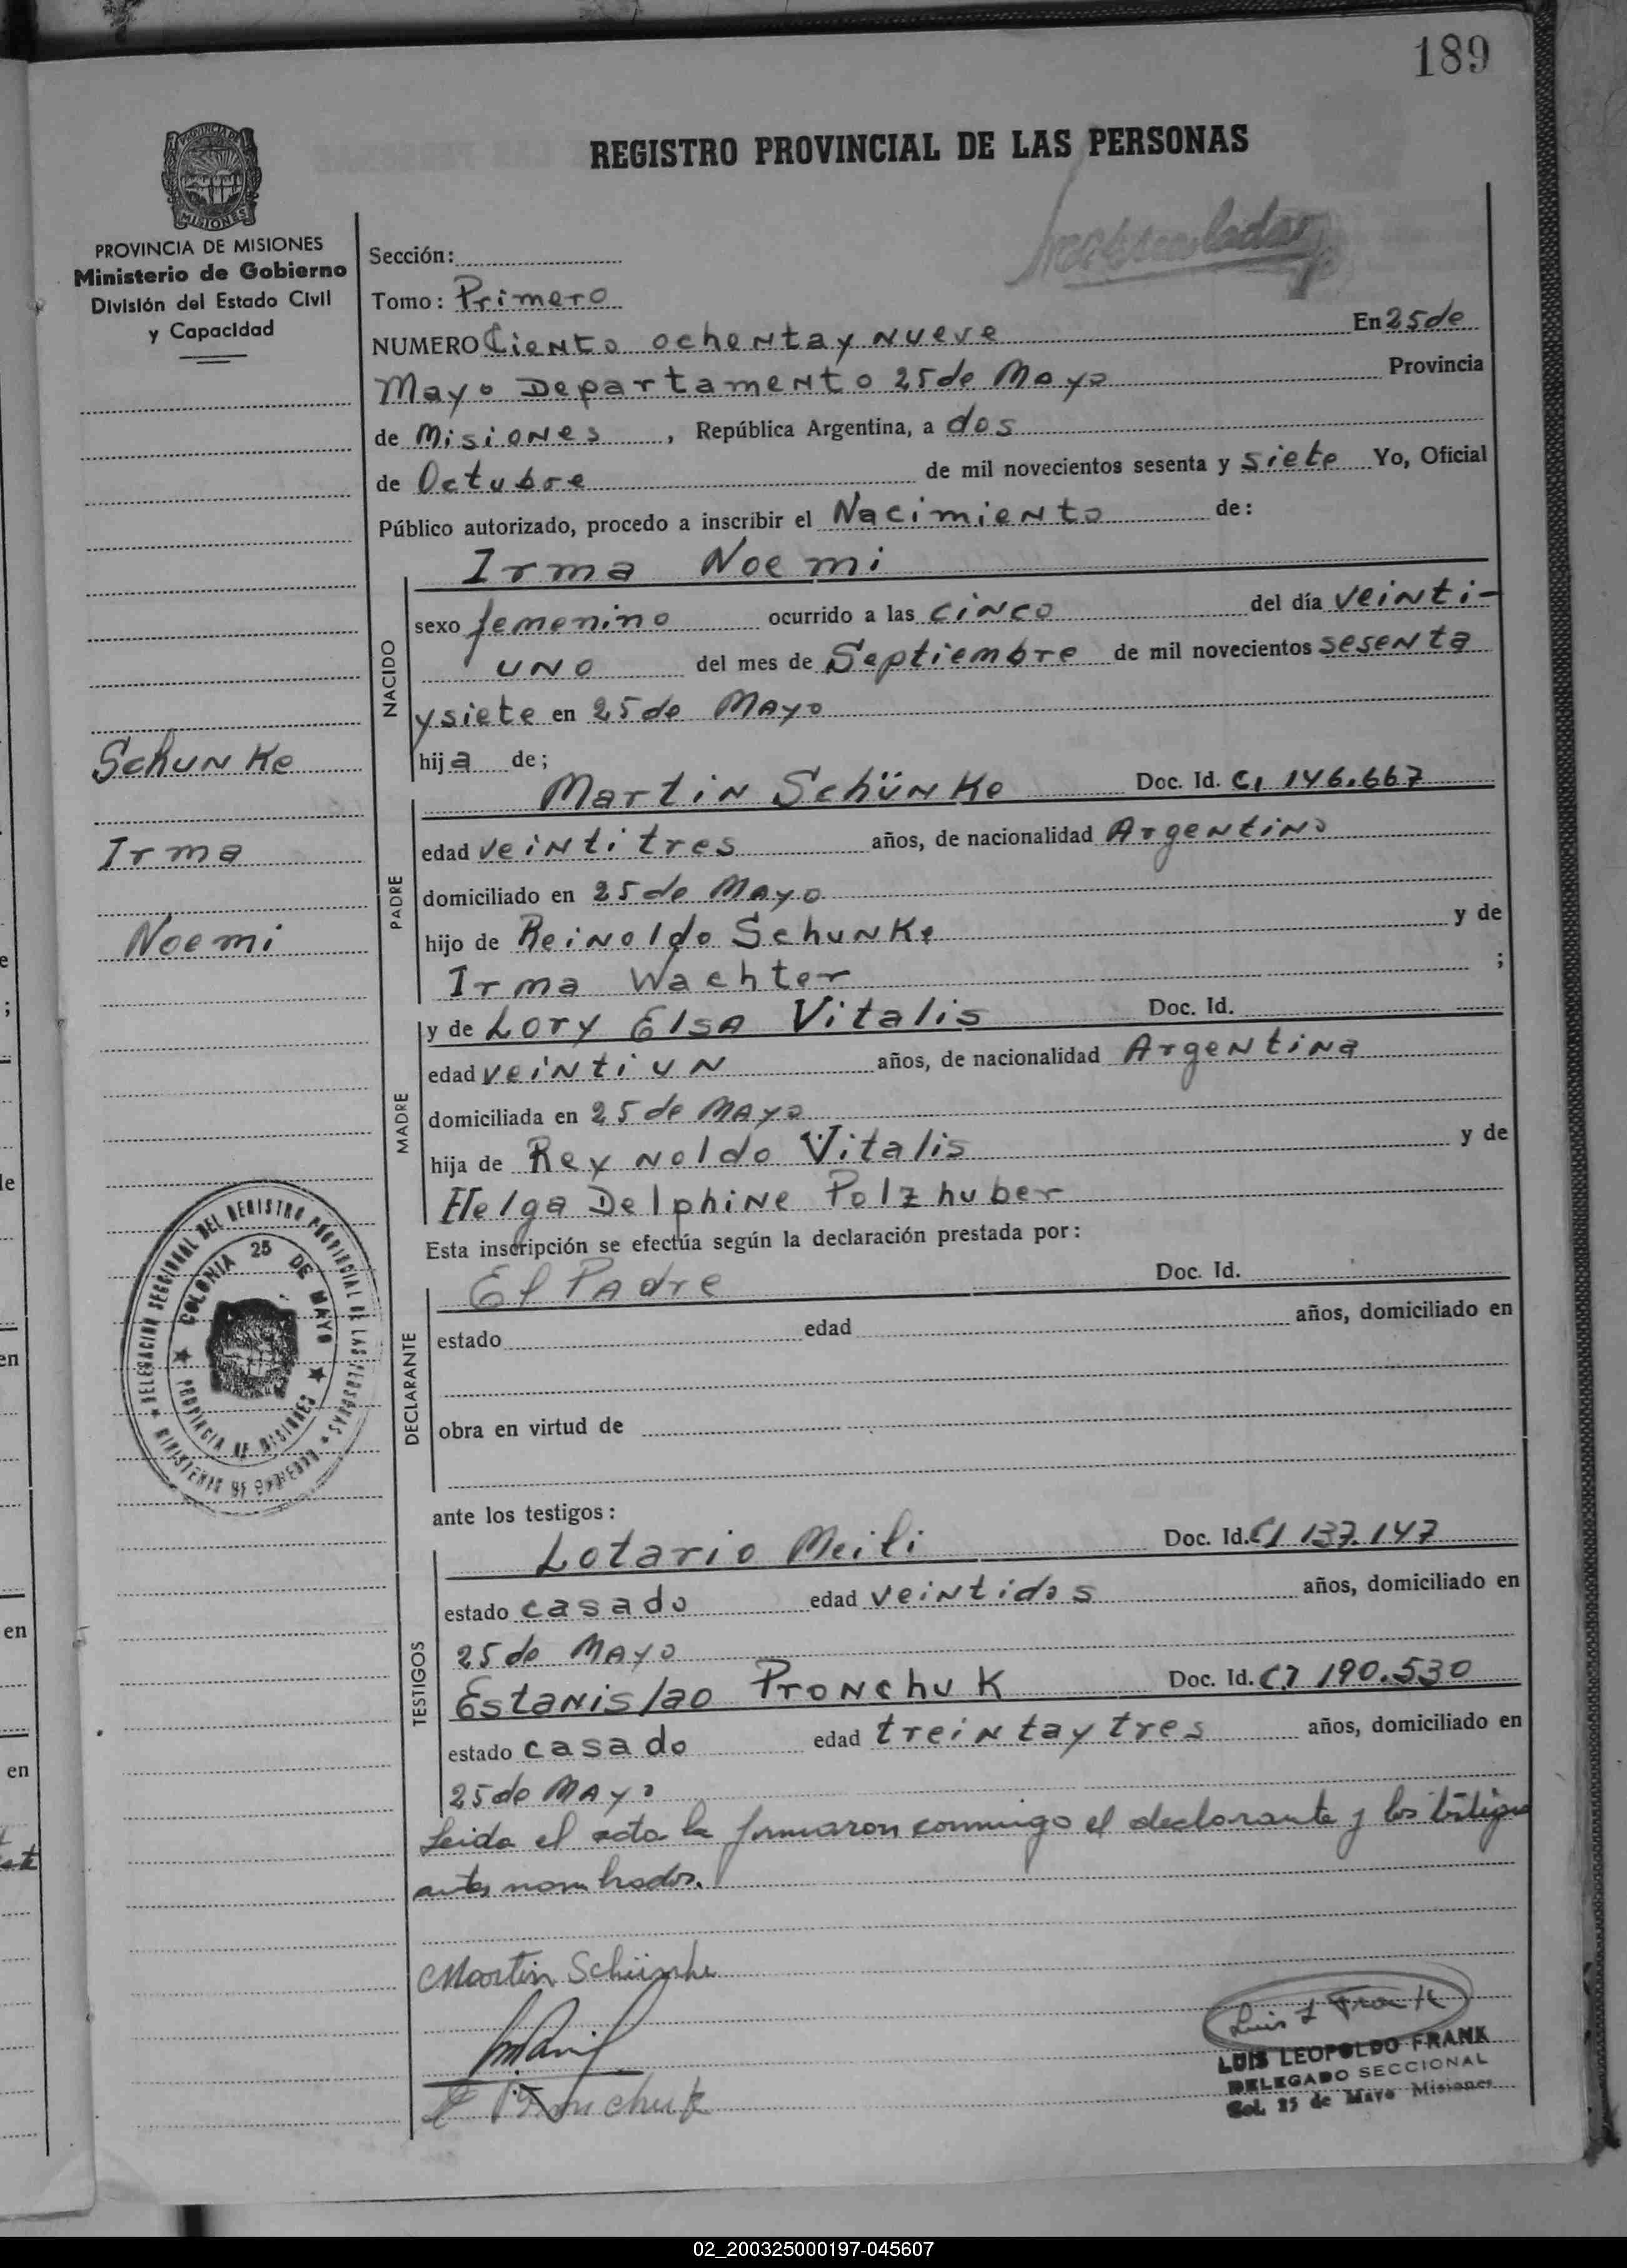 189
REGISTRO PROVINCIAL DE LAS PERSONAS
MISIONES
PROVINCIA DE MISIONES
Ministerio de Gobierno
División del Estado Civil
y Capacidad
Sección:
Tomo: Primero
NUMERO Ciento ochenta y nueve En 25 de
Mayo Departamento 25 de Mayo Provincia
de Misiones, República Argentina, a dos
de Octubre de mil novecientos sesenta y siete Yo, Oficial
Público autorizado, procedo a inscribir el Nacimiento de:
Irma Noemi
NACIDO
sexo femenino ocurrido a las cinco del día veinti-
uno del mes de Septiembre de mil novecientos sesenta
y siete en 25 de Mayo
hija de;
Schunke
Irma
Noemi
PADRE
Martin Schünke Doc. Id. C, 146.667
edad veintitres años, de nacionalidad Argentino
domiciliado en 25 de Mayo
hijo de Reinoldo Schunke y de
Irma Wachter ;
MADRE
y de Lory Elsa Vitalis Doc. Id.
edad veintiun años, de nacionalidad Argentina
domiciliada en 25 de Mayo
hija de Reynoldo Vitalis y de
Helga Delphine Polzhuber
Esta inscripción se efectúa según la declaración prestada por:
DECLARANTE
El Padre Doc. Id.
estado edad años, domiciliado en
obra en virtud de
DELEGACION SECCIONAL DEL REGISTRO PROVINCIAL DE LAS PERSONAS
MINISTERIO DE GOBIERNO
COLONIA 25 DE MAYO
PROVINCIA DE MISIONES
ante los testigos:
TESTIGOS
Lotario Meili Doc. Id. CI 137.147
estado casado edad veintidos años, domiciliado en
25 de Mayo
Estanislao Pronchuk Doc. Id. CI 190.530
estado casado edad treinta y tres años, domiciliado en
25 de Mayo
Leida el acta la firmaron conmigo el declarante y los testigos
antes nombrados.
Martin Schünke
E Pronchuk
Luis L Frank
LUIS LEOPOLDO FRANK
DELEGADO SECCIONAL
Col. 25 de Mayo Misiones
02_200325000197-045607